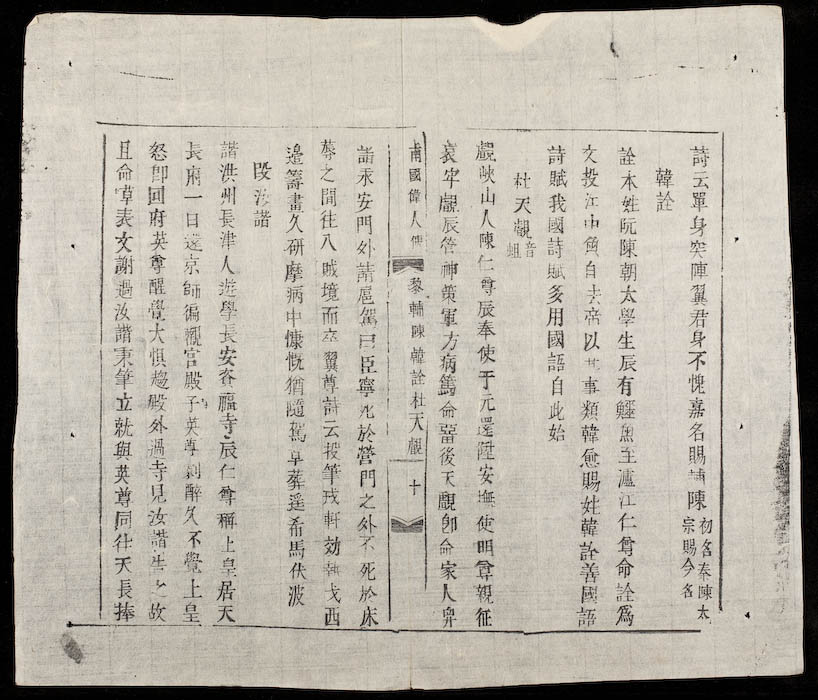 詩云單身突陣翼君身不愧嘉名賜輔陳初名奉陳太宗賜今名
韓詮
詮本姓阮陳朝太學生辰有鱷魚至瀘江仁尊命詮爲
文投江中魚自去帝以其事類韓愈賜姓韓詮善國語
詩賦我國詩賦多用國語自此始
杜天覰音蛆
覰峽山人陳仁尊辰奉使于元還陞安撫使明尊親征
哀牢覰辰管神策軍方病篤命畱後天覰卽命家人舁
南國偉人傳 黎輔陳韓詮杜天覰 十
詣永安門外請扈駕曰臣寧死於營門之外不死於床
蓐之間往入賊境而卒翼尊詩云投筆戎軒効執戈西
邉籌畫久研摩病中慷慨猶隨駕草葬遥希馬伏波
段汝諧
諧洪州長津人遊學長安資福寺辰仁尊稱上皇居天
長府一日還京師徧觀宮殿子英尊剩醉久不覺上皇
怒卽回府英尊醒覺大惧趨殿外過寺見汝諧告之故
且命草表文謝過汝諧秉筆立就與英尊同往天長捧